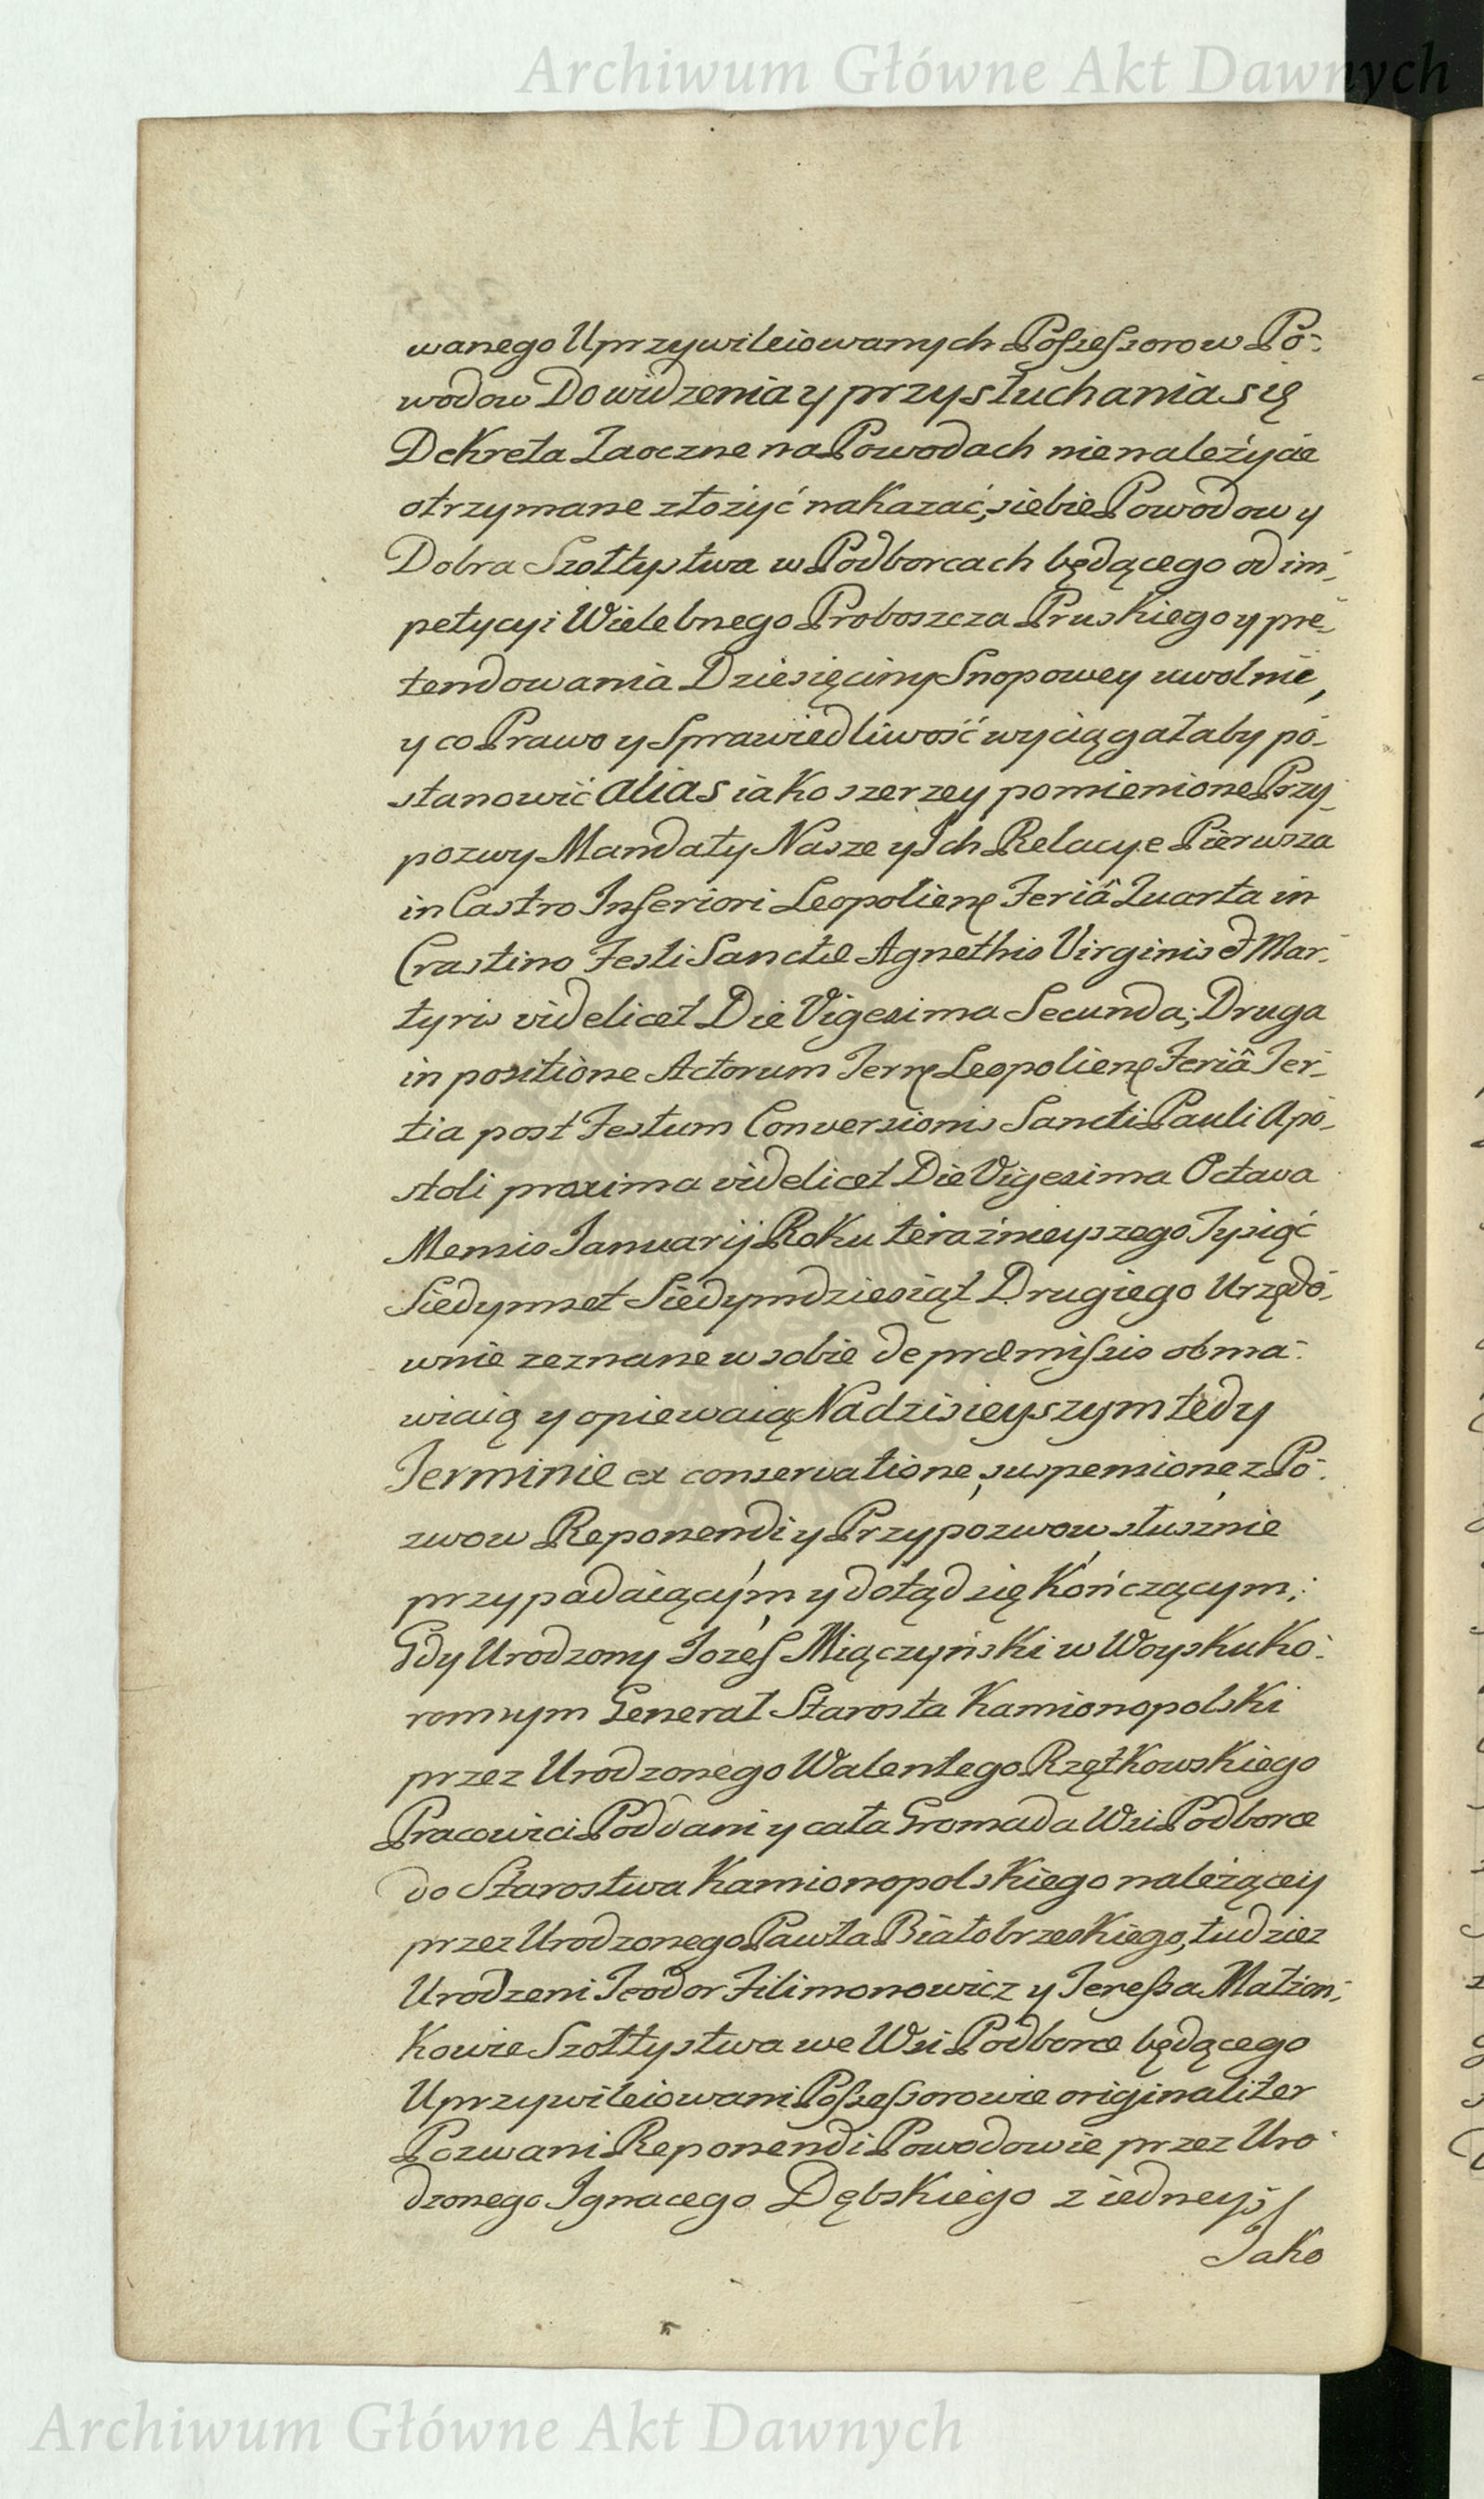 Archiwum Główne Akt Dawnych
wanego Uprzywileiowanych Possessorow Po-
wodow Do widzenia y przysłuchania się
Dekreta Zaoczne na Powodach nienależycie
otrzymane złożyć nakazać, siebie Powodow y
Dobra Szołtystwa w Podborcach będącego od im-
petycyi Wielebnego Proboszcza Pruskiego y pre-
tendowania Dziesięciny Snopowey uwolnić,
y co Prawo y Sprawiedliwość wyciągałaby po-
stanowić alias iako szerzey pomienione Przy-
pozwy Mandaty Nasze y Ich Relacye Pierwsza
in Castro Inferiori Leopoliens Feriâ Quarta in
Crastino Festi Sanctæ Agnethis Virginis & Mar-
tyris videlicet Die Vigesima Secunda; Druga
in positione Actorum Terrę Leopolienę Feriâ Ter-
tia post Festum Conversionis Sancti Pauli Apo-
stoli proxima videlicet Die Vigesima Octava
Mensis Januarij Roku teraźnieyszego Tysiąć
Siedymset Siedymdziesiąt Drugiego Urzędo-
wnie zeznane w sobie de præmissis obma-
wiaią y opiewaią Na dzisieyszym tedy
Terminie ex conservatione, suspensione z Po-
zwow Reponendi y Przypozwow słusznie
przypadaiącym y dotąd się kończącym;
Gdy Urodzony Jozef Miączyński w Woysku Ko-
ronnym Generał Starosta Kamionopolski
przez Urodzonego Walentego Rzętkowskiego
Pracowici Poddani y cała Gromada Wsi Podborce
do Starostwa Kamionopolskiego należącey
przez Urodzonego Pawła Białobrzeskiego, tudzież
Urodzeni Teodor Filimonowicz y Teressa Małżon-
kowie Szołtystwa we Wsi Podborce będącego
Uprzywileiowani Possessorowie originaliter
Pozwani Reponendi Powodowie przez Uro-
dzonego Ignacego Dębskiego z iedney;
Jako
Archiwum Główne Akt Dawnych